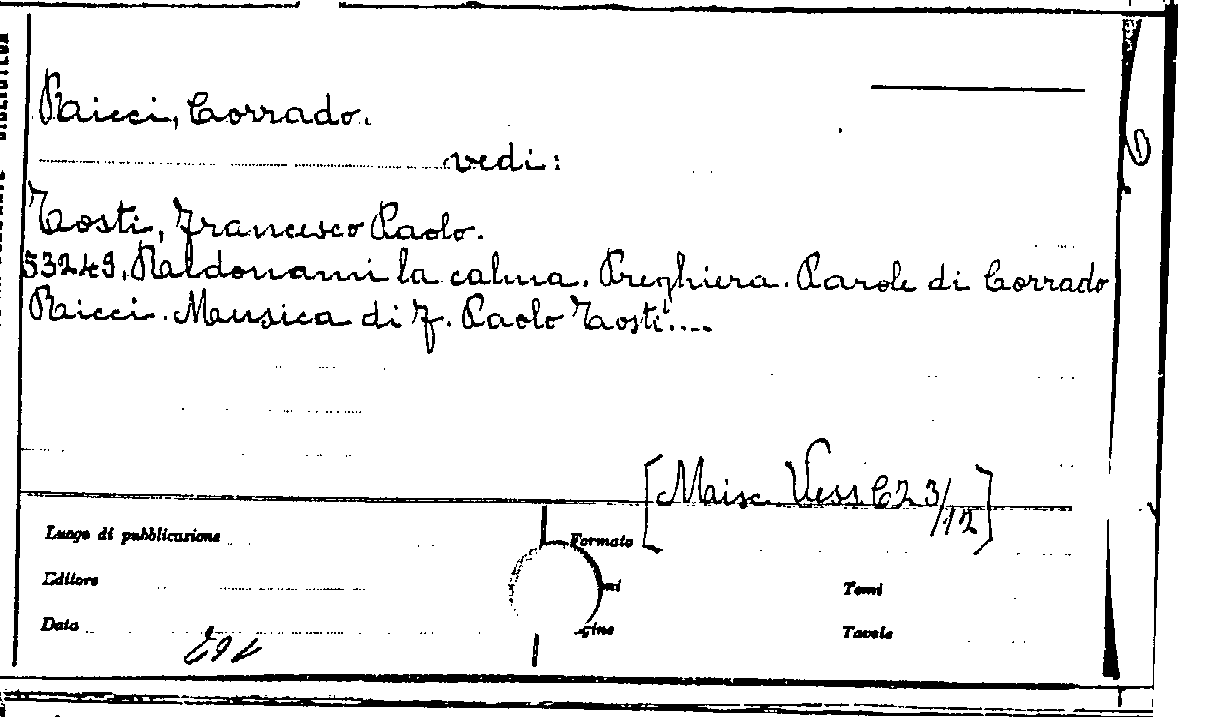 Ricci, Corrado.
vedi:
Tosti, Francesco Paolo.
53249. Ridonami la calma. Preghiera. Parole di Corrado
Ricci. Musica di F. Paolo Tosti....
[Misc. Vess. C 23/12]
Luogo di pubblicazione
Formato
Editore
Tomi
Data
Tavole